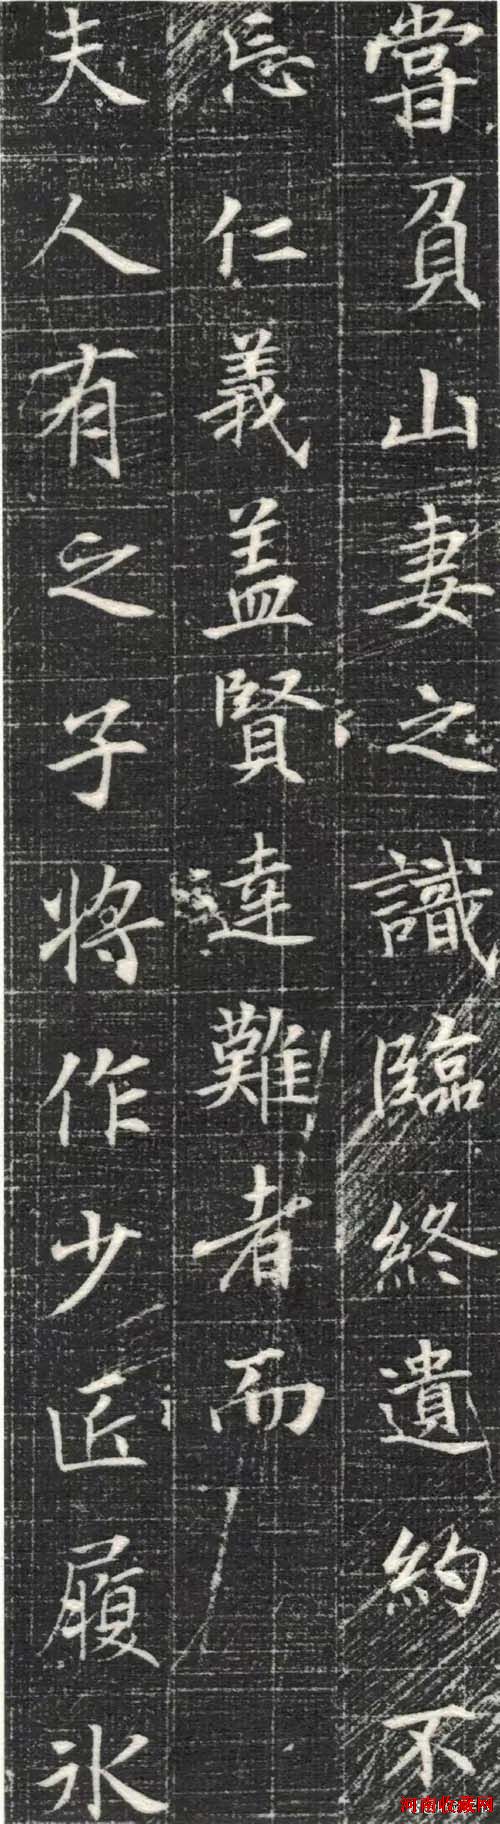 甞負山妻之識臨終遺約不
忘仁義盖賢達難者而
夫人有之子将作少匠履氷
河南收藏网